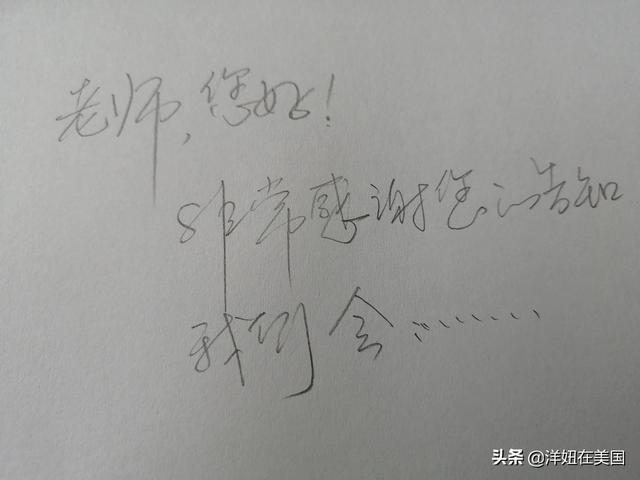 老师,您好!
非常感谢您的告知
我们会………
头条 @洋妞在美国